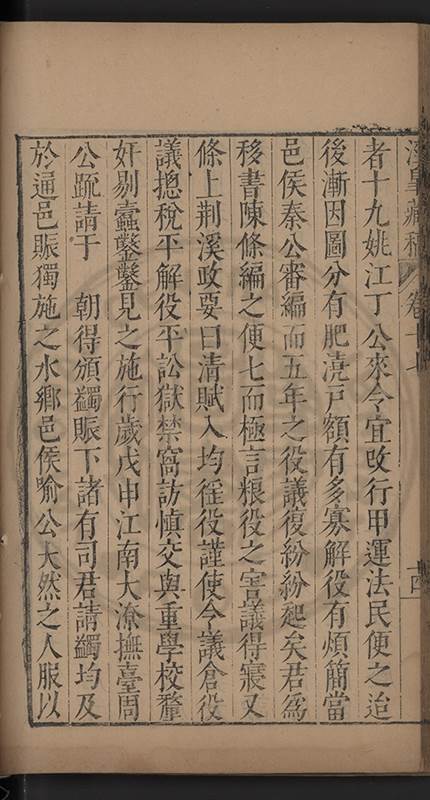 涇臯藏稿 卷十七 十四
者十九姚江丁公來令宜改行甲運法民便之迨
後漸因圖分有肥澆戸額有多寡解役有煩簡當
邑侯秦公審編而五年之役議復紛紛起矣君爲
移書陳條編之便七而極言粮役之害議得寢又
條上荆溪政要曰清賦入均徭役謹使令議倉役
議揔稅平解役平訟獄禁窩訪慎交與重學校釐
奸剔蠹鑿鑿見之施行歲戊申江南大潦撫臺周
公䟽請于 朝得頒蠲賑下諸有司君請蠲均及
於通邑賑獨施之水鄉邑侯喻公大然之人服以